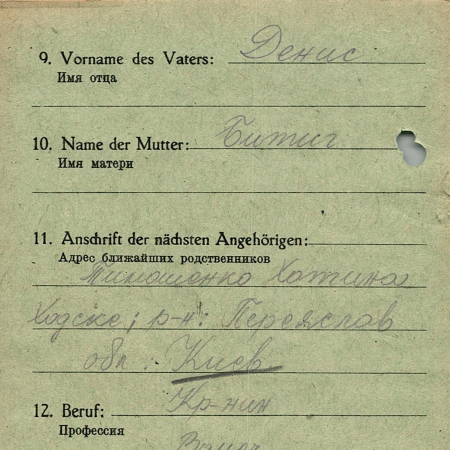 9. Vorname des Vaters: Денис
Имя отца
10. Name der Mutter: Битиг
Имя матери
11. Anschrift der nächsten Angehörigen:
Адрес ближайших родственников
Тимошенко Хотина
Ходске; р-н: Переяслав
обл: Киев
12. Beruf: Кр-нин
Профессия